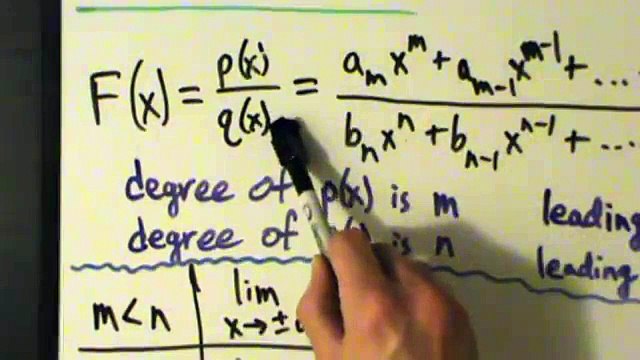 F(x) = p(x)/q(x) = a_m x^m + a_{m-1} x^{m-1} + .../b_n x^n + b_{n-1} x^{n-1} + ...
degree of p(x) is m leading
degree of is n leading
m < n lim x → ±